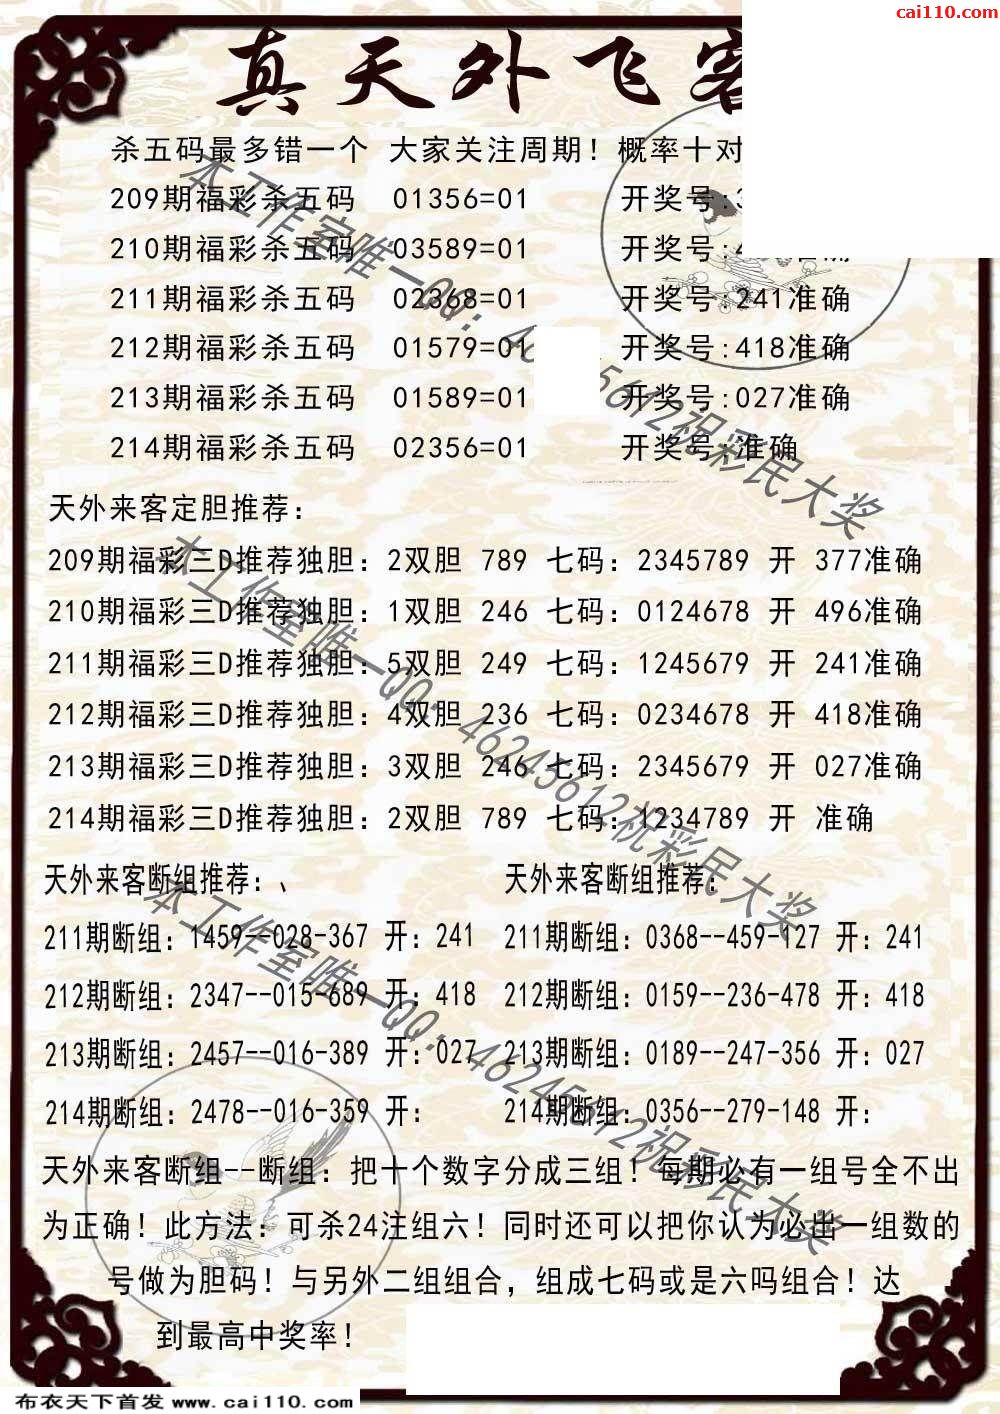 cai110.com
真天外飞客
杀五码最多错一个 大家关注周期！概率十对
209期福彩杀五码 01356=01 开奖号:3
210期福彩杀五码 03589=01 开奖号:4 准确
211期福彩杀五码 02368=01 开奖号:241准确
212期福彩杀五码 01579=01 开奖号:418准确
213期福彩杀五码 01589=01 开奖号:027准确
214期福彩杀五码 02356=01 开奖号:准确
天外来客定胆推荐：
209期福彩三D推荐独胆：2双胆 789 七码：2345789 开 377准确
210期福彩三D推荐独胆：1双胆 246 七码：0124678 开 496准确
211期福彩三D推荐独胆：5双胆 249 七码：1245679 开 241准确
212期福彩三D推荐独胆：4双胆 236 七码：0234678 开 418准确
213期福彩三D推荐独胆：3双胆 246 七码：2345679 开 027准确
214期福彩三D推荐独胆：2双胆 789 七码：1234789 开 准确
天外来客断组推荐：、 天外来客断组推荐：
211期断组：1459--028-367 开：241 211期断组：0368--459-127 开：241
212期断组：2347--015-689 开：418 212期断组：0159--236-478 开：418
213期断组：2457--016-389 开：027 213期断组：0189--247-356 开：027
214期断组：2478--016-359 开： 214期断组：0356--279-148 开：
天外来客断组--断组：把十个数字分成三组！每期必有一组号全不出
为正确！此方法：可杀24注组六！同时还可以把你认为必出一组数的
号做为胆码！与另外二组组合，组成七码或是六吗组合！达
到最高中奖率！
本工作室唯一QQ：46245612祝彩民大奖
本工作室唯一QQ：46245612祝彩民大奖
本工作室唯一QQ：46245612祝彩民大奖
布衣天下首发 www.cai110.com